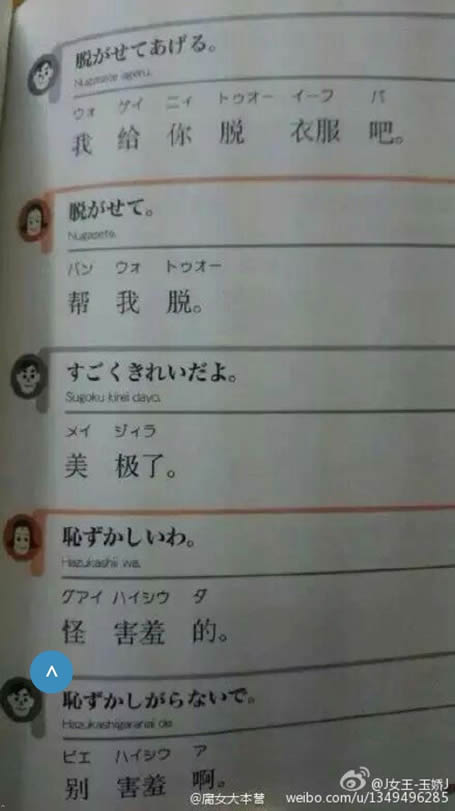 脱がせてあげる。
Nugasete ageru.
ウォ ゲイ ニィ トゥオー イーフ バ
我 给 你 脱 衣服 吧。
脱がせて。
Nugasete.
バン ウォ トゥオー
帮 我 脱。
すごくきれいだよ。
Sugoku kirei dayo.
メイ ジィラ
美 极了。
恥ずかしいわ。
Hazukashii wa.
グアイ ハイシウ ダ
怪 害羞 的。
恥ずかしがらないで。
Hazukashigaranai de.
ビエ ハイシウ ア
别 害羞 啊。
@J女王-玉娇J
@魔女大本营 weibo.com/u/1349496285